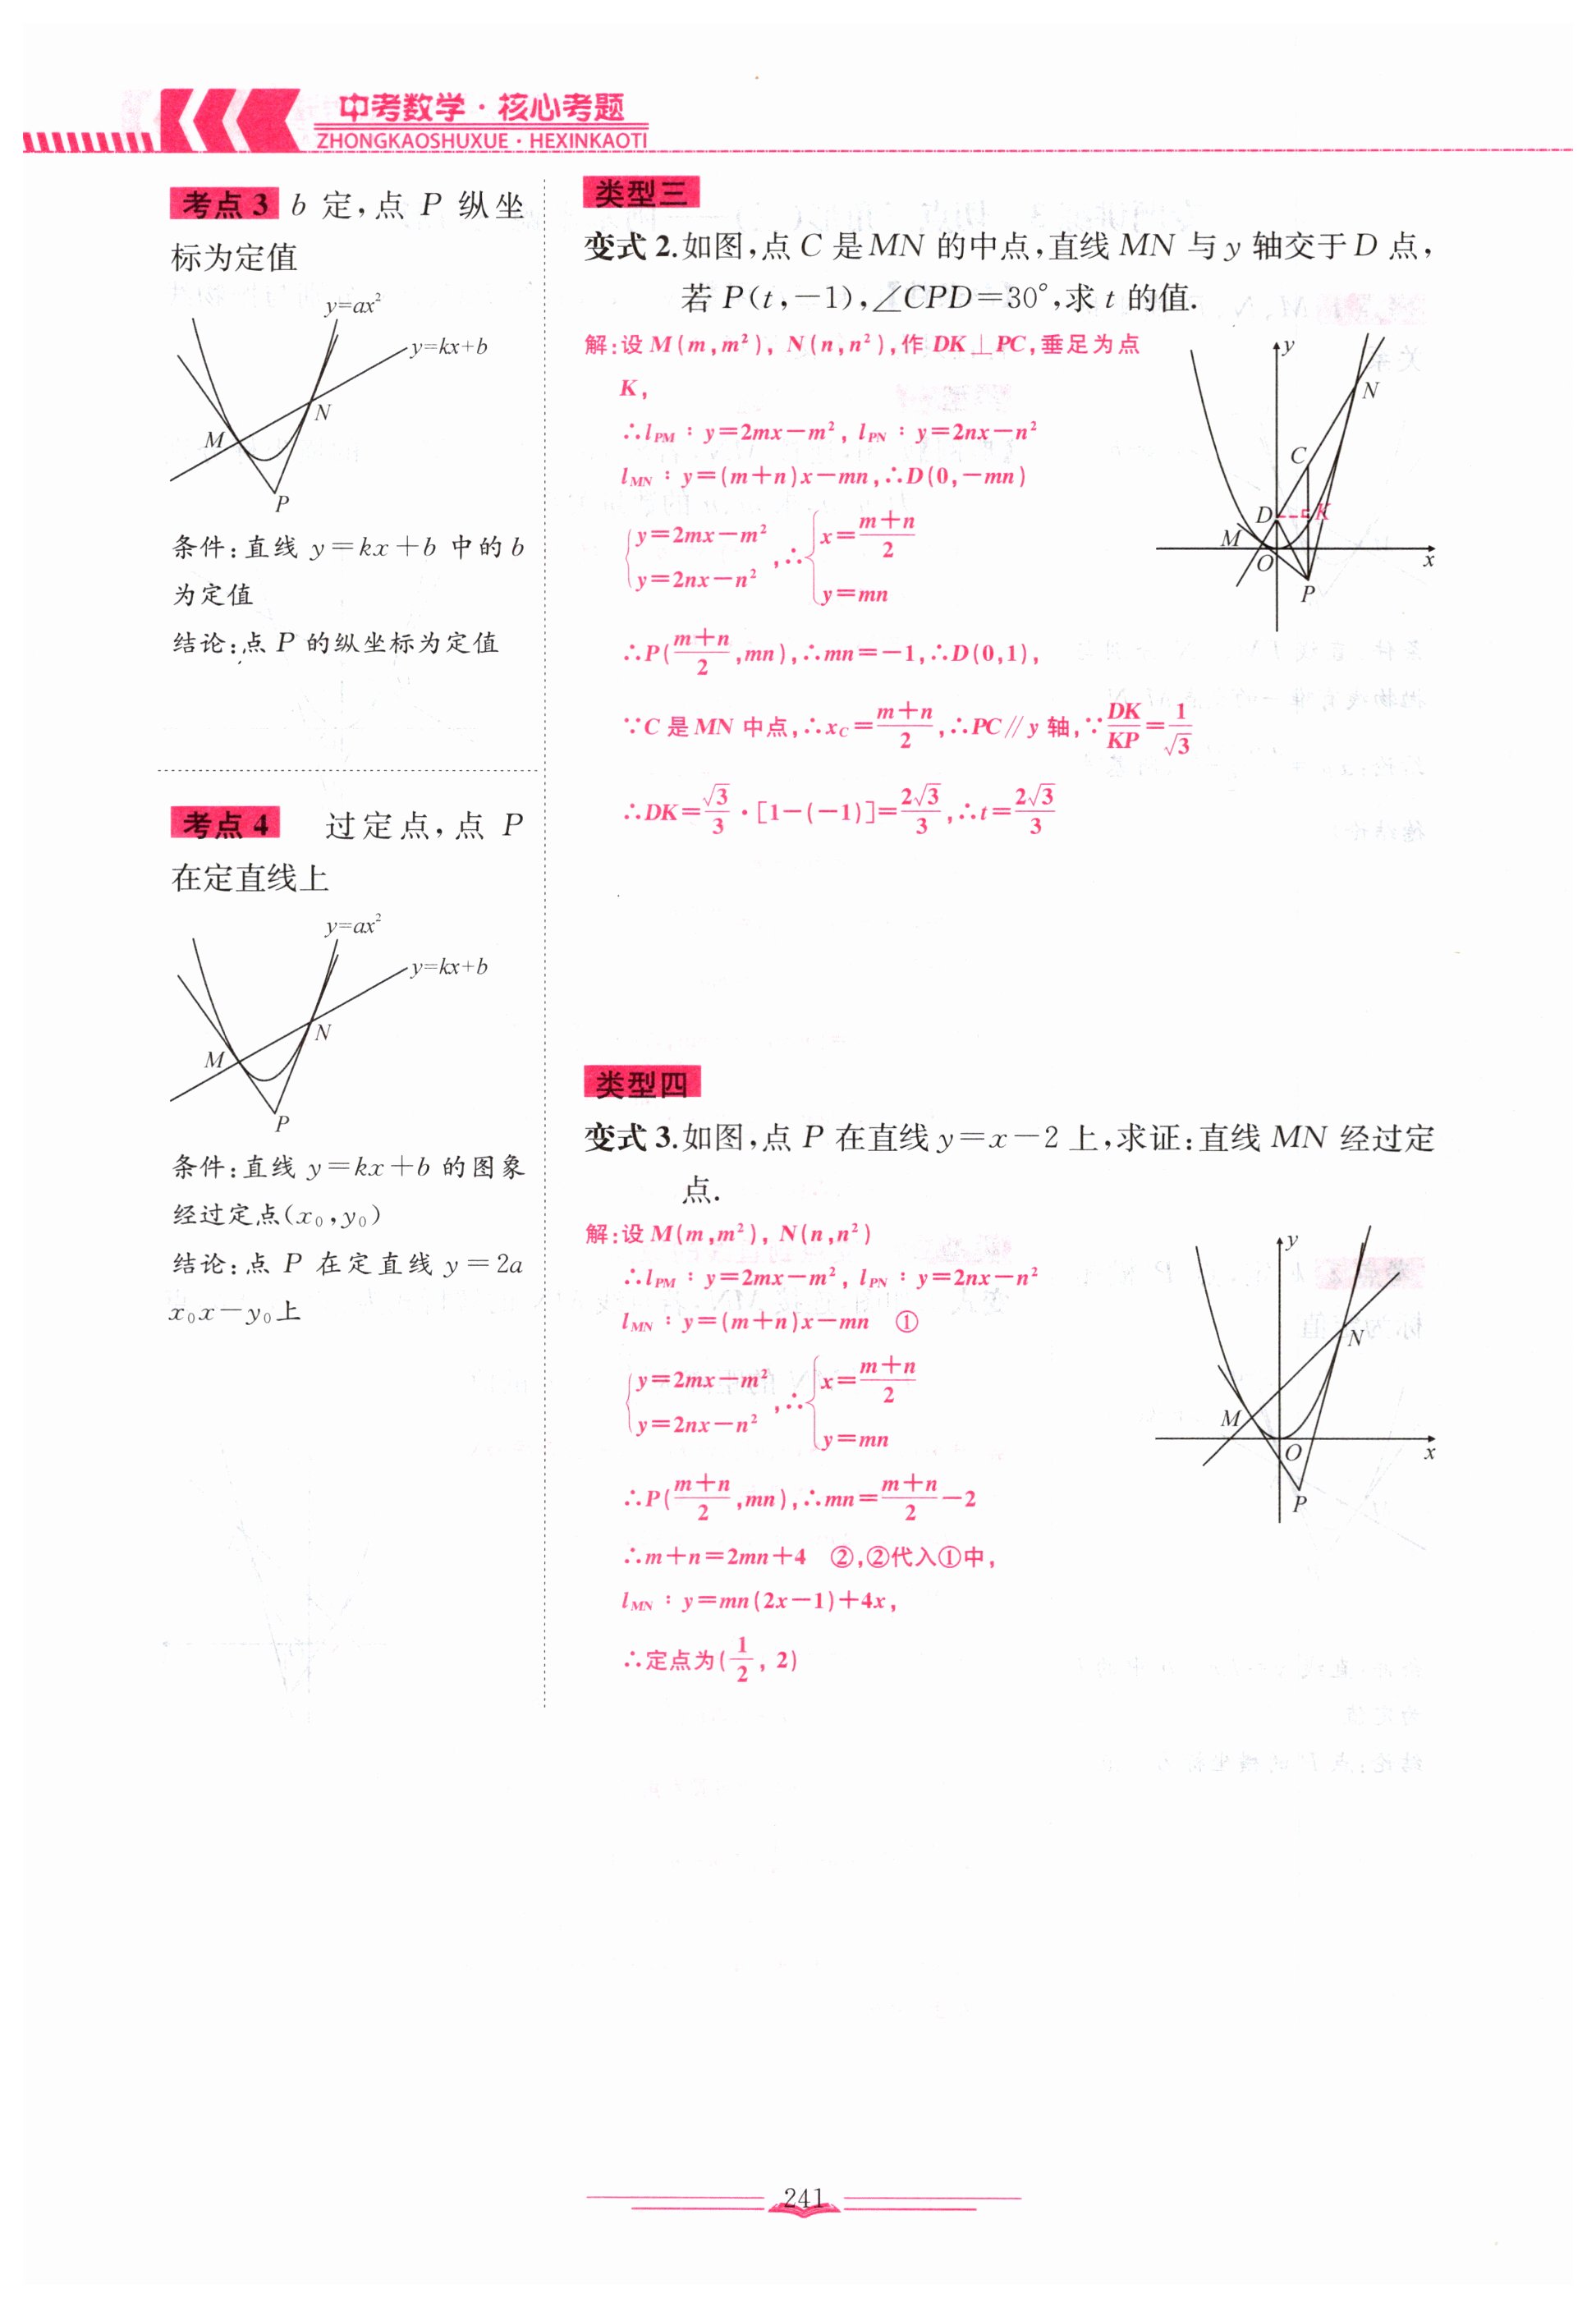 中考数学·核心考题
ZHONGKAOSHUXUE·HEXINKAOTI
考点 3 b 定,点 P 纵坐
标为定值
y=ax²
y=kx+b
M
N
P
条件:直线 y=kx+b 中的 b
为定值
结论:点 P 的纵坐标为定值
考点 4 过定点,点 P
在定直线上
y=ax²
y=kx+b
M
N
P
条件:直线 y=kx+b 的图象
经过定点(x₀,y₀)
结论:点 P 在定直线 y=2a
x₀x-y₀上
类型三
变式 2.如图,点 C 是 MN 的中点,直线 MN 与 y 轴交于 D 点,
若 P(t,-1),∠CPD=30°,求 t 的值.
解:设 M(m,m²), N(n,n²),作 DK⊥PC,垂足为点
K,
∴l_PM:y=2mx-m², l_PN:y=2nx-n²
l_MN:y=(m+n)x-mn,∴D(0,-mn)
{y=2mx-m², y=2nx-n²,∴{x=(m+n)/2, y=mn
∴P((m+n)/2,mn),∴mn=-1,∴D(0,1),
∵C 是 MN 中点,∴x_C=(m+n)/2,∴PC∥y 轴,∵DK/KP=1/√3
∴DK=√3/3·[1-(-1)]=2√3/3,∴t=2√3/3
y
N
C
D
K
M
O
x
P
类型四
变式 3.如图,点 P 在直线 y=x-2 上,求证:直线 MN 经过定
点.
解:设 M(m,m²), N(n,n²)
∴l_PM:y=2mx-m², l_PN:y=2nx-n²
l_MN:y=(m+n)x-mn ①
{y=2mx-m², y=2nx-n²,∴{x=(m+n)/2, y=mn
∴P((m+n)/2,mn),∴mn=(m+n)/2-2
∴m+n=2mn+4 ②,②代入①中,
l_MN:y=mn(2x-1)+4x,
∴定点为(1/2, 2)
y
N
M
O
x
P
241